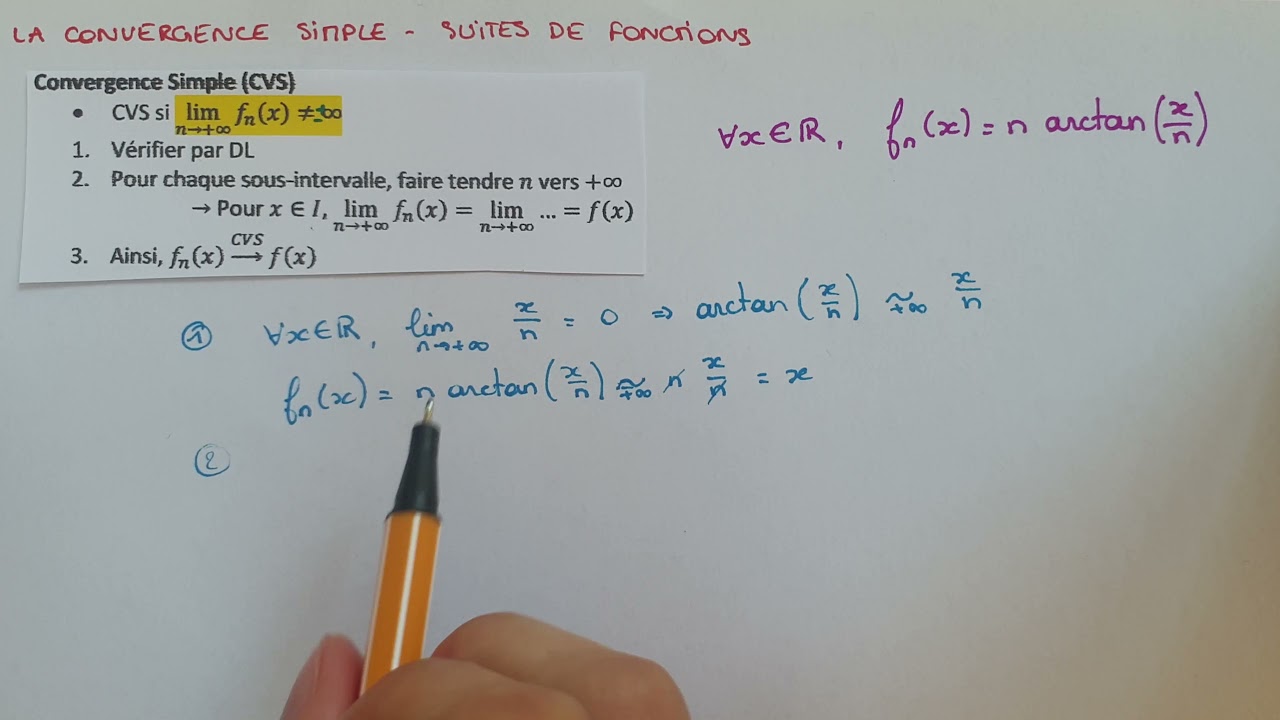 LA CONVERGENCE SIMPLE - SUITES DE FONCTIONS
Convergence Simple (CVS)
• CVS si lim n→+∞ fₙ(x) ≠ ±∞
1. Vérifier par DL
2. Pour chaque sous-intervalle, faire tendre n vers +∞
→ Pour x ∈ I, lim n→+∞ fₙ(x) = lim n→+∞ ... = f(x)
3. Ainsi, fₙ(x) CVS→ f(x)
∀x∈ℝ, fₙ(x) = n arctan(x/n)
① ∀x∈ℝ, lim n→+∞ x/n = 0 ⇒ arctan(x/n) ≈ +∞ x/n
fₙ(x) = n arctan(x/n) ≈ +∞ n x/n = x
②